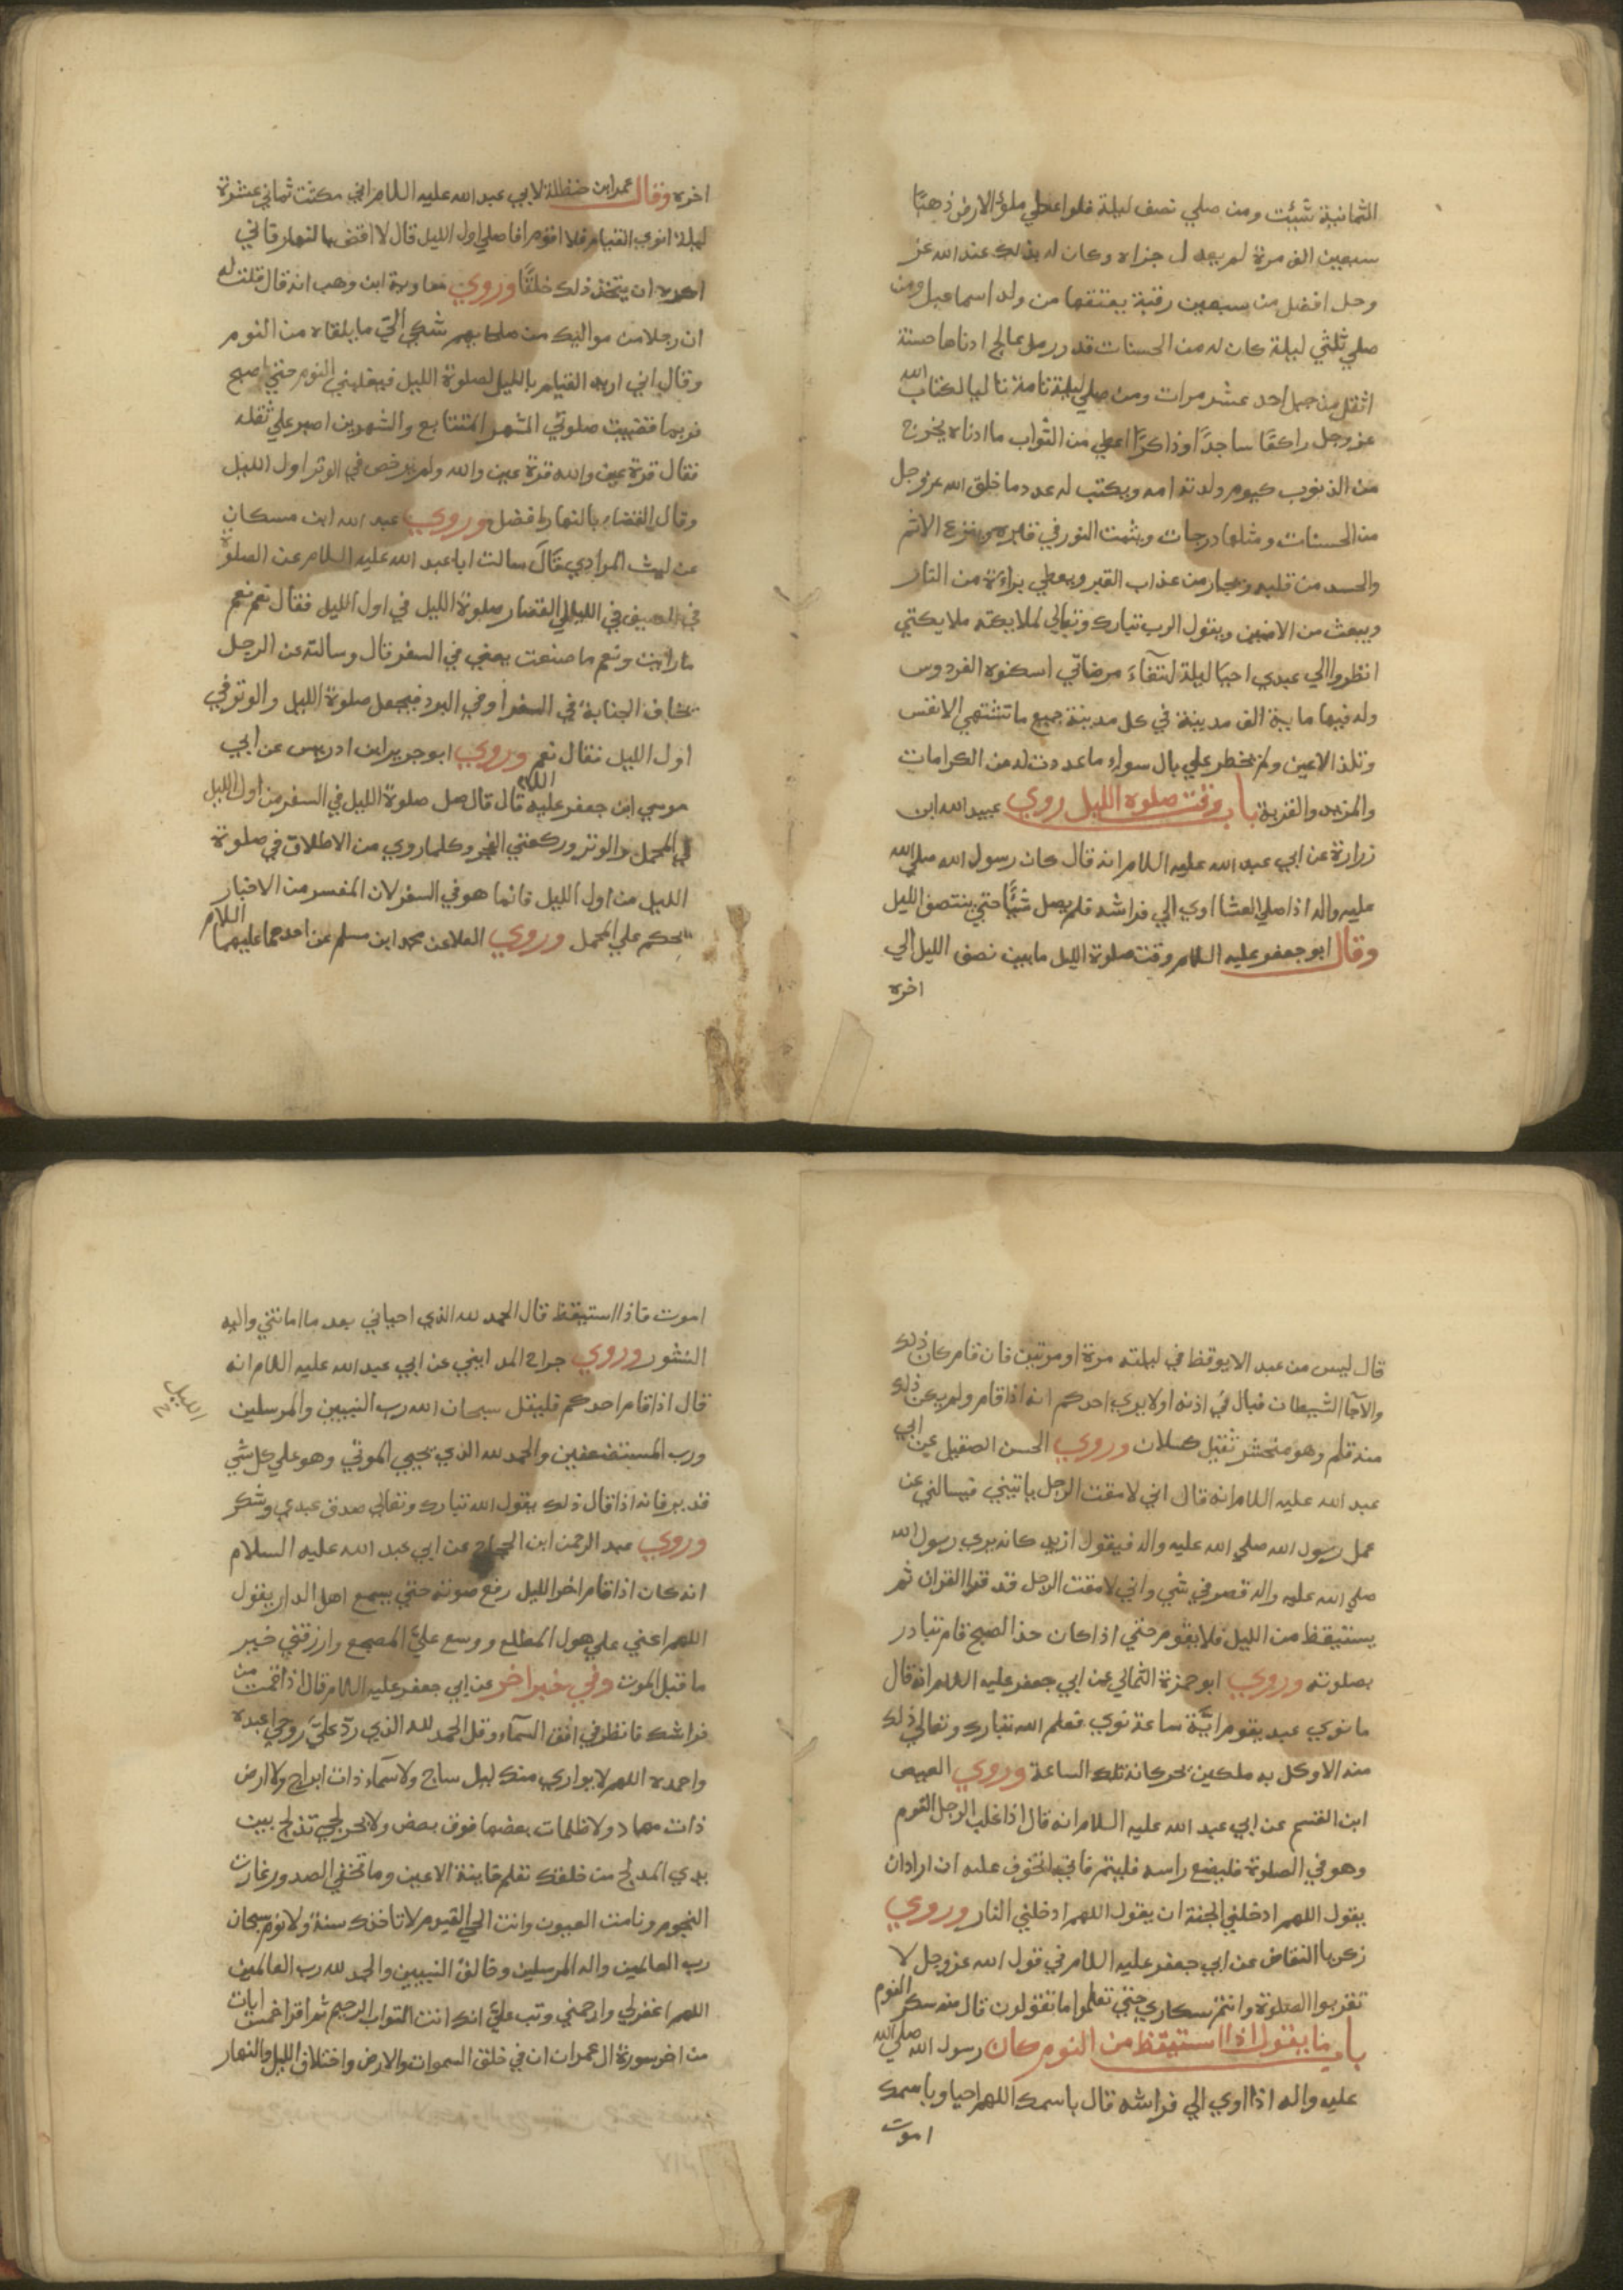 الثمانية شيئت ومن صلي نصف ليلة فلو اعطي ملؤ الارض ذهبًا
سبعين الف مرة لم يعدل جزاه وكان له بذلك عند الله عز
وجل افضل من سبعين رقبة يعتقها من ولد اسماعيل ومن
صلي ثلثي ليلة كان له من الحسنات قدر رمل عالج ادناها حسنة
اثقل من جبل احد عشر مرات ومن صلي ليلة تامة تاليا لكتاب الله
عز وجل راكعًا ساجدًا اوذاكرًا اعطي من الثواب ما ادناه يخرج
من الذنوب كيوم ولدته امه ويكتب له عدد ما خلق الله عز وجل
من الحسنات ومثلها درجات ويثبت النور في قبره وينزع الاثم
والحسد من قلبه ويجار من عذاب القبر ويعطي براءة من النار
ويبعث من الامنين ويقول الرب تبارك وتعالي لملايكته ملايكتي
انظروا الي عبدي احيا ليلة ابتغاء مرضاتي اسكنوه الفردوس
وله فيها ماية الف مدينة في كل مدينة جميع ما تشتهي الانفس
وتلذ الاعين ولم يخطر علي بال سواء ما عددت له من الكرامات
والمزيد والقربة باب وقت صلوة الليل روي عبيد الله ابن
زرارة عن ابي عبد الله عليه اللام انه قال كان رسول الله صلي الله
عليه واله اذا صلي العشا اوي الي فراشه فلم يصل شيًا حتي ينتصف الليل
وقال ابو جعفر عليه السلام وقت صلوة الليل ما بين نصف الليل الي
اخره
اخره وقال عمر ابن حنظلة لابي عبد الله عليه اللام اني مكثت ثماني عشرة
ليلة انوي القيام فلا اقوم افاصلي اول الليل قال لا اقض بالنهار فاني
اكره ان يتخذ ذلك خلقًا وروي معاوية ابن وهب انه قال قلت له
ان رجلا من مواليك من صلحايهم شكي الي ما يلقاه من النوم
وقال اني اريد القيام بالليل لصلوة الليل فيغلبني النوم حتي اصبح
فربما قضيت صلوتي الشهر المتتابع والشهرين اصبر علي ثقله
فقال قرة عين والله قرة عين والله ولم يرخص في الوتر اول الليل
وقال القضاء بالنهار افضل وروي عبد الله ابن مسكان
عن ليث المرادي قال سالت ابا عبد الله عليه السلام عن الصلوة
في الصيف في الليالي القصار صلوة الليل في اول الليل فقال نعم نعم
ما رايت ونعم ما صنعت يعني في السفر قال وسالته عن الرجل
يخاف الجنابة في السفر او في البرد فيجعل صلوة الليل والوتر في
اول الليل فقال نعم وروي ابو جرير ابن ادريس عن ابي
موسي ابن جعفر عليه اللام قال قال صل صلوة الليل في السفر من اول الليل
في المحمل والوتر وركعتي الفجر وكلما روي من الاطلاق في صلوة
الليل من اول الليل فانما هو في السفر لان المفسر من الاخبار
يحكم علي المجمل وروي العلا عن محمد ابن مسلم عن احدهما عليهما اللام
قال ليس من عبد الا يوقظ في ليلته مرة او مرتين فان قام كان ذلك
والا جا الشيطان فبال في اذنه اولا يري احدكم انه اذا قام ولم يكن ذلك
منه قام وهو متحشر ثقيل كسلان وروي الحسن الصيقل عن ابي
عبد الله عليه اللام انه قال اني لامقت الرجل ياتيني فيسالني عن
عمل رسول الله صلي الله عليه واله فيقول ازيد كانه يري رسول الله
صلي الله عليه واله قصر في شي واني لامقت الرجل قد قرا القران ثم
يستيقظ من الليل فلا يقوم حتي اذا كان حذا الصبح قام تبادر
بصلوته وروي ابو حمزة الثمالي عن ابي جعفر عليه اللام انه قال
ما نوي عبد يقوم ايّة ساعة نوي فعلم الله تبارك وتعالي ذلك
منه الا وكل به ملكين يحركانه تلك الساعة وروي العيص
ابن القسم عن ابي عبد الله عليه السلام انه قال اذا غلب الرجل النوم
وهو في الصلوة فليضع راسه فلينم فاني اتخوف عليه ان اراد ان
يقول اللهم ادخلني الجنة ان يقول اللهم ادخلني النار وروي
زكريا النقاض عن ابي جعفر عليه اللام في قول الله عز وجل لا
تقربوا الصلوة وانتم سكاري حتي تعلموا ما تقولون قال منه سكر النوم
باب ما يقول اذا استيقظ من النوم كان رسول الله صلي الله
عليه واله اذا اوي الي فراشه قال باسمك اللهم احيا وباسمك
اموت
اموت فاذا استيقظ قال الحمد لله الذي احياني بعد ما اماتني واليه
النشور وروي جراح المدايني عن ابي عبد الله عليه اللام انه
قال اذا قام احدكم فليقل سبحان الله رب النبيين والمرسلين
ورب المستضعفين والحمد لله الذي يحيي الموتي وهو علي كل شي
قدير فانه اذا قال ذلك يقول الله تبارك وتعالي صدق عبدي وشكر
وروي عبد الرحمن ابن الحجاج عن ابي عبد الله عليه السلام
انه كان اذا قام اخر الليل رفع صوته حتي يسمع اهل الدار يقول
اللهم اعني علي هول المطلع ووسع علي المضجع وارزقني خير
ما قبل الموت وفي خبر اخر عن ابي جعفر عليه اللام قال اذا قمت من
فراشك فانظر في افق السماء وقل الحمد لله الذي ردّ عليّ روحي اعبده
واحمده اللهم لا يواري منك ليل ساج ولا سماء ذات ابراج ولا ارض
ذات مهاد ولا ظلمات بعضها فوق بعض ولا بحر لجي تدلج بين
يدي المدلج من خلقك تعلم خاينة الاعين وما تخفي الصدور غارت
النجوم ونامت العيون وانت الحي القيوم لا تاخذك سنة ولا نوم سبحان
رب العالمين واله المرسلين وخالق النبيين والحمد لله رب العالمين
اللهم اغفر لي وارحمني وتب علي انك انت التواب الرحيم ثم اقرا خمس ايات
من اخر سورة ال عمران ان في خلق السموات والارض واختلاف الليل والنهار